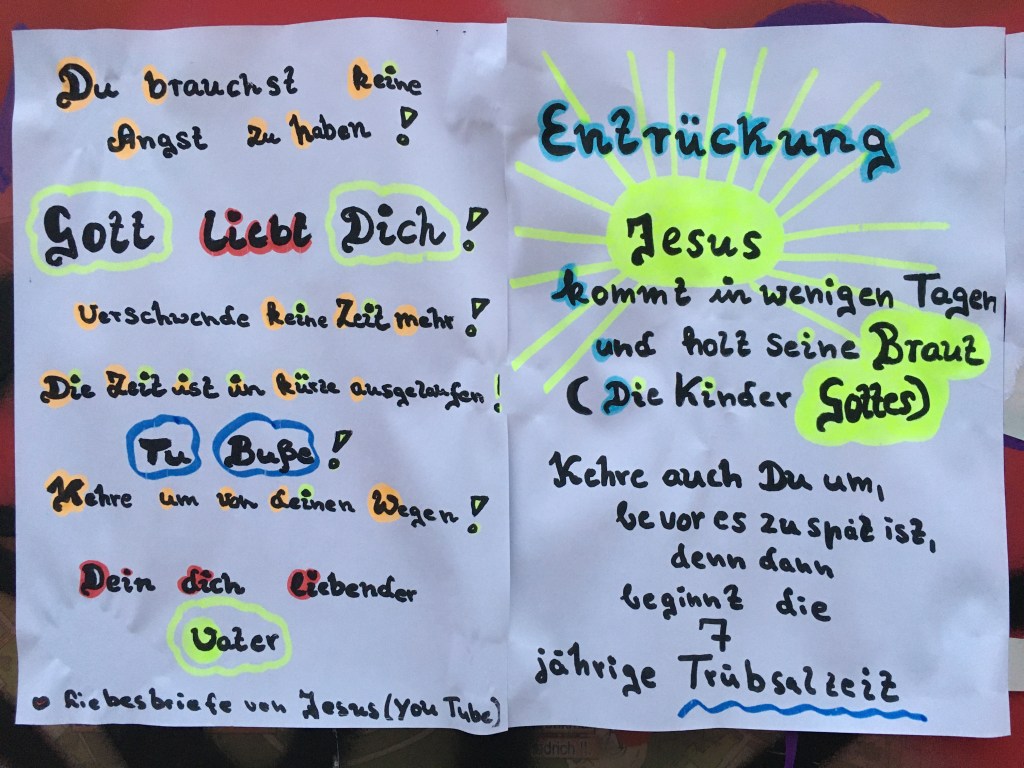 Du brauchst keine
Angst zu haben !
Gott liebt Dich !
Verschwende keine Zeit mehr !
Die Zeit ist in kürze ausgelaufen !
Tu Buße !
Kehre um von deinen Wegen !
Dein dich liebender
Vater
Liebesbriefe von Jesus (You Tube)
Entrückung
Jesus
kommt in wenigen Tagen
und holt seine Braut
(Die Kinder Gottes)
Kehre auch Du um,
bevor es zu spät ist,
denn dann
beginnt die
7
jährige Trübsalzeit